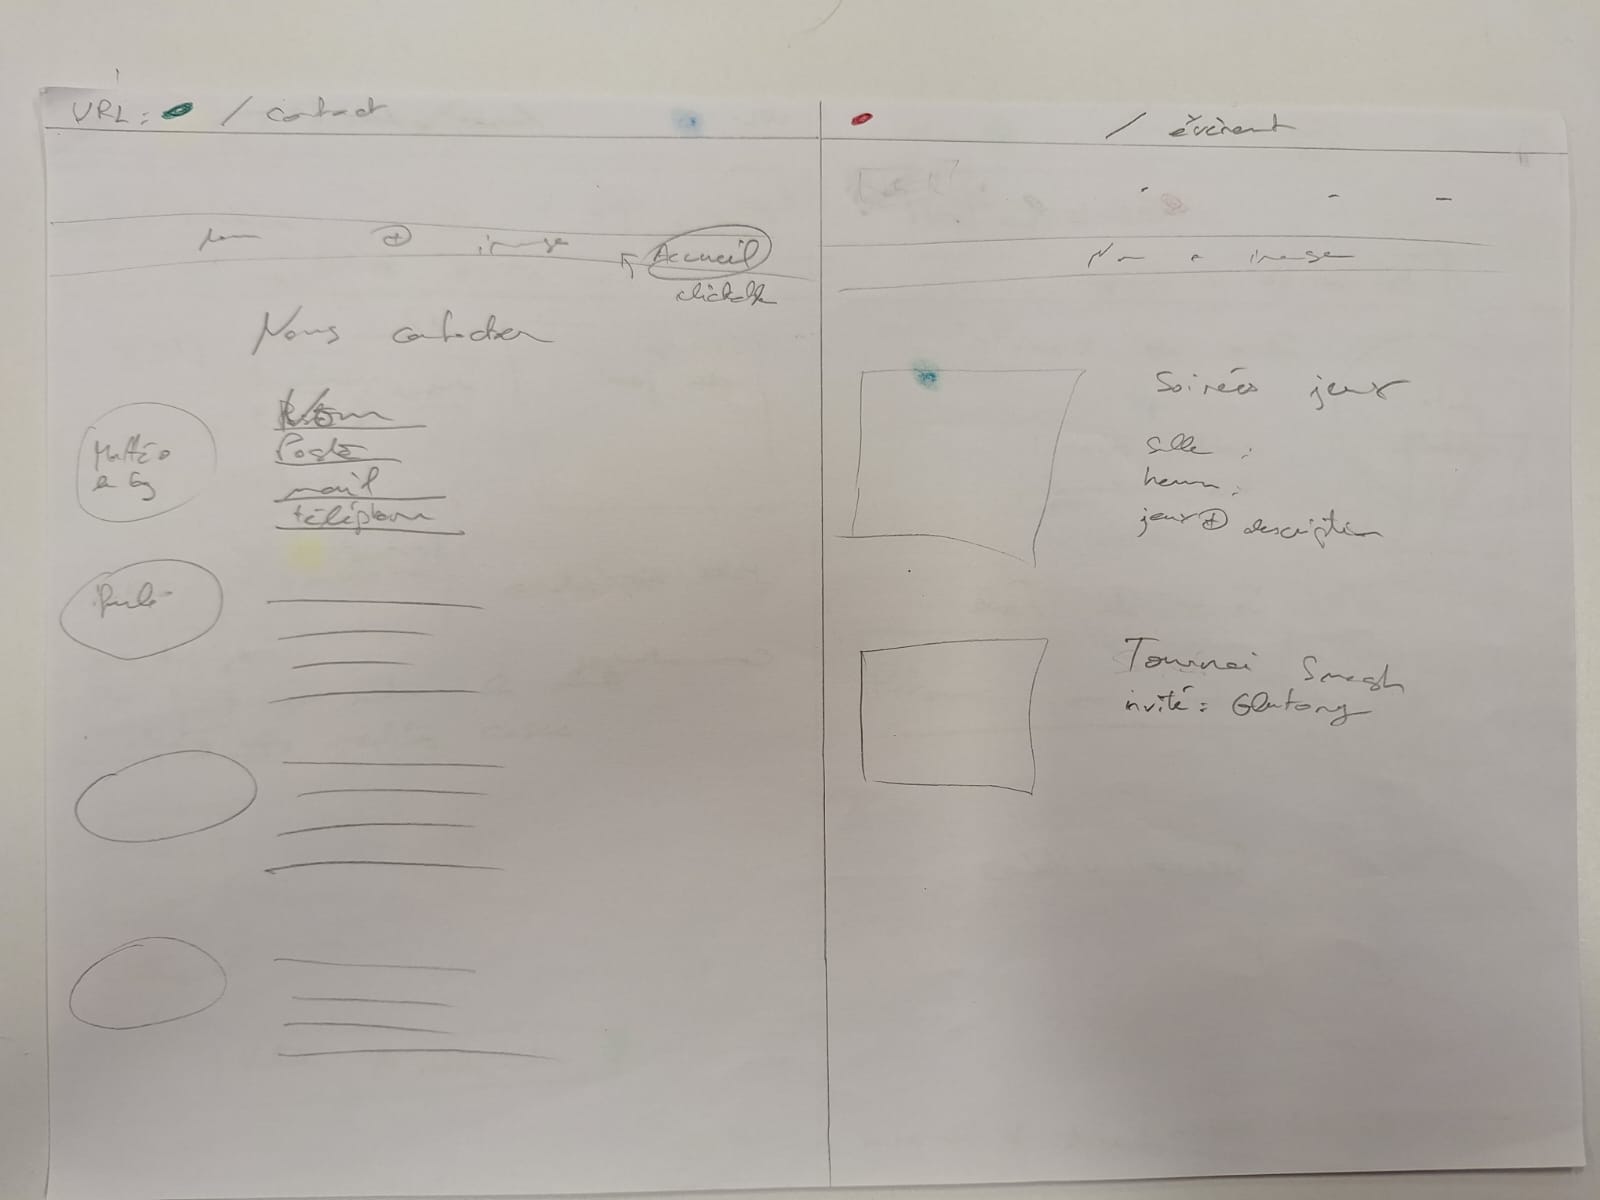 URL : / contact
Nom + image
Accueil
clickable
Nous contacter
Nom
Poste
mail
téléphone
/ évènement
Nom + image
Soirées jeux
salle :
heure :
jeux + description
Tournoi Smash
invité : Glutony